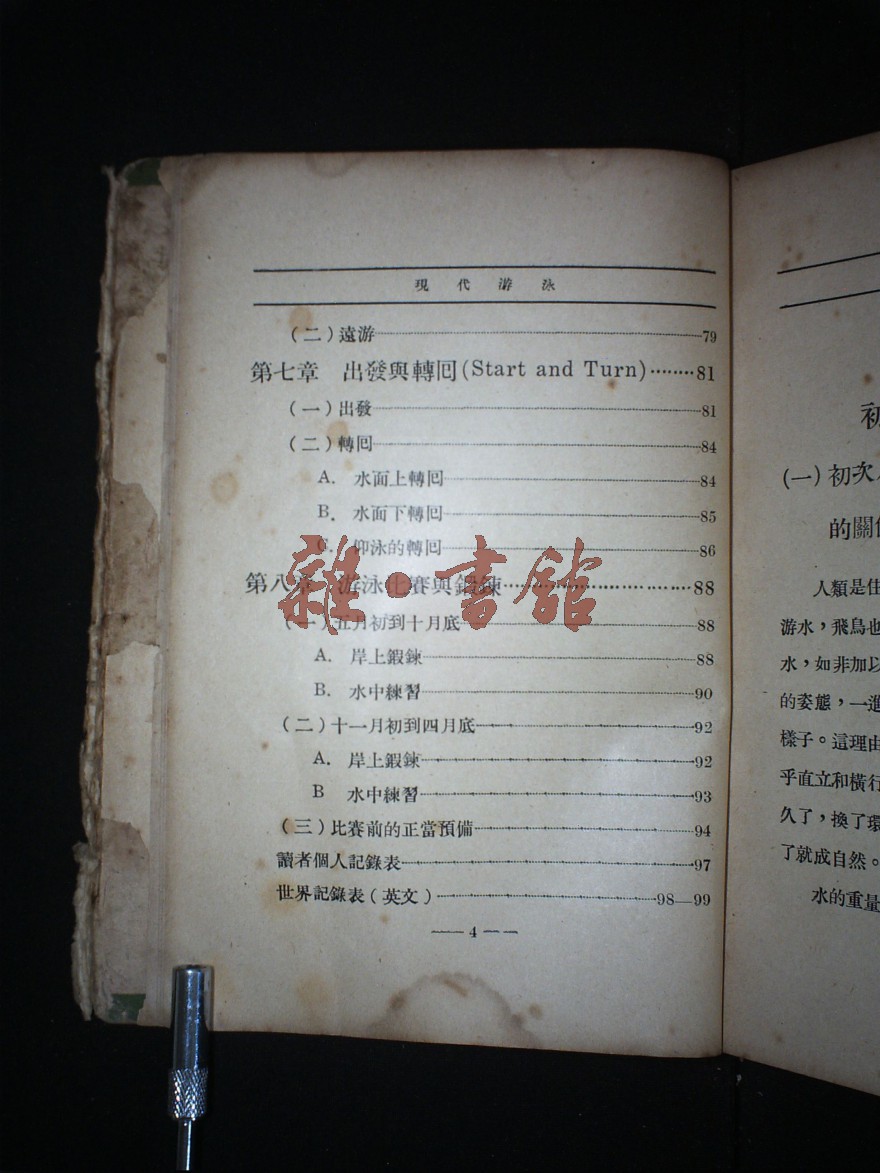 現代游泳
(二)遠游 79
第七章 出發與轉回(Start and Turn) 81
(一)出發 81
(二)轉回 84
A. 水面上轉回 84
B. 水面下轉回 85
C. 仰泳的轉回 86
第八章 游泳比賽與鍛鍊 88
(一)五月初到十月底 88
A. 岸上鍛鍊 88
B. 水中練習 90
(二)十一月初到四月底 92
A. 岸上鍛鍊 92
B 水中練習 93
(三)比賽前的正當預備 94
讀者個人記錄表 97
世界記錄表(英文) 98—99
—4—
雜·書館
初
(一)初次
的關
人類是住
游水,飛鳥也
水,如非加以
的姿態,一進
樣子。這理由
乎直立和橫行
久了,換了環
了就成自然。
水的重量